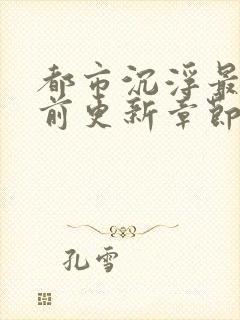 都市沉浮最
前更新章节
孔雪